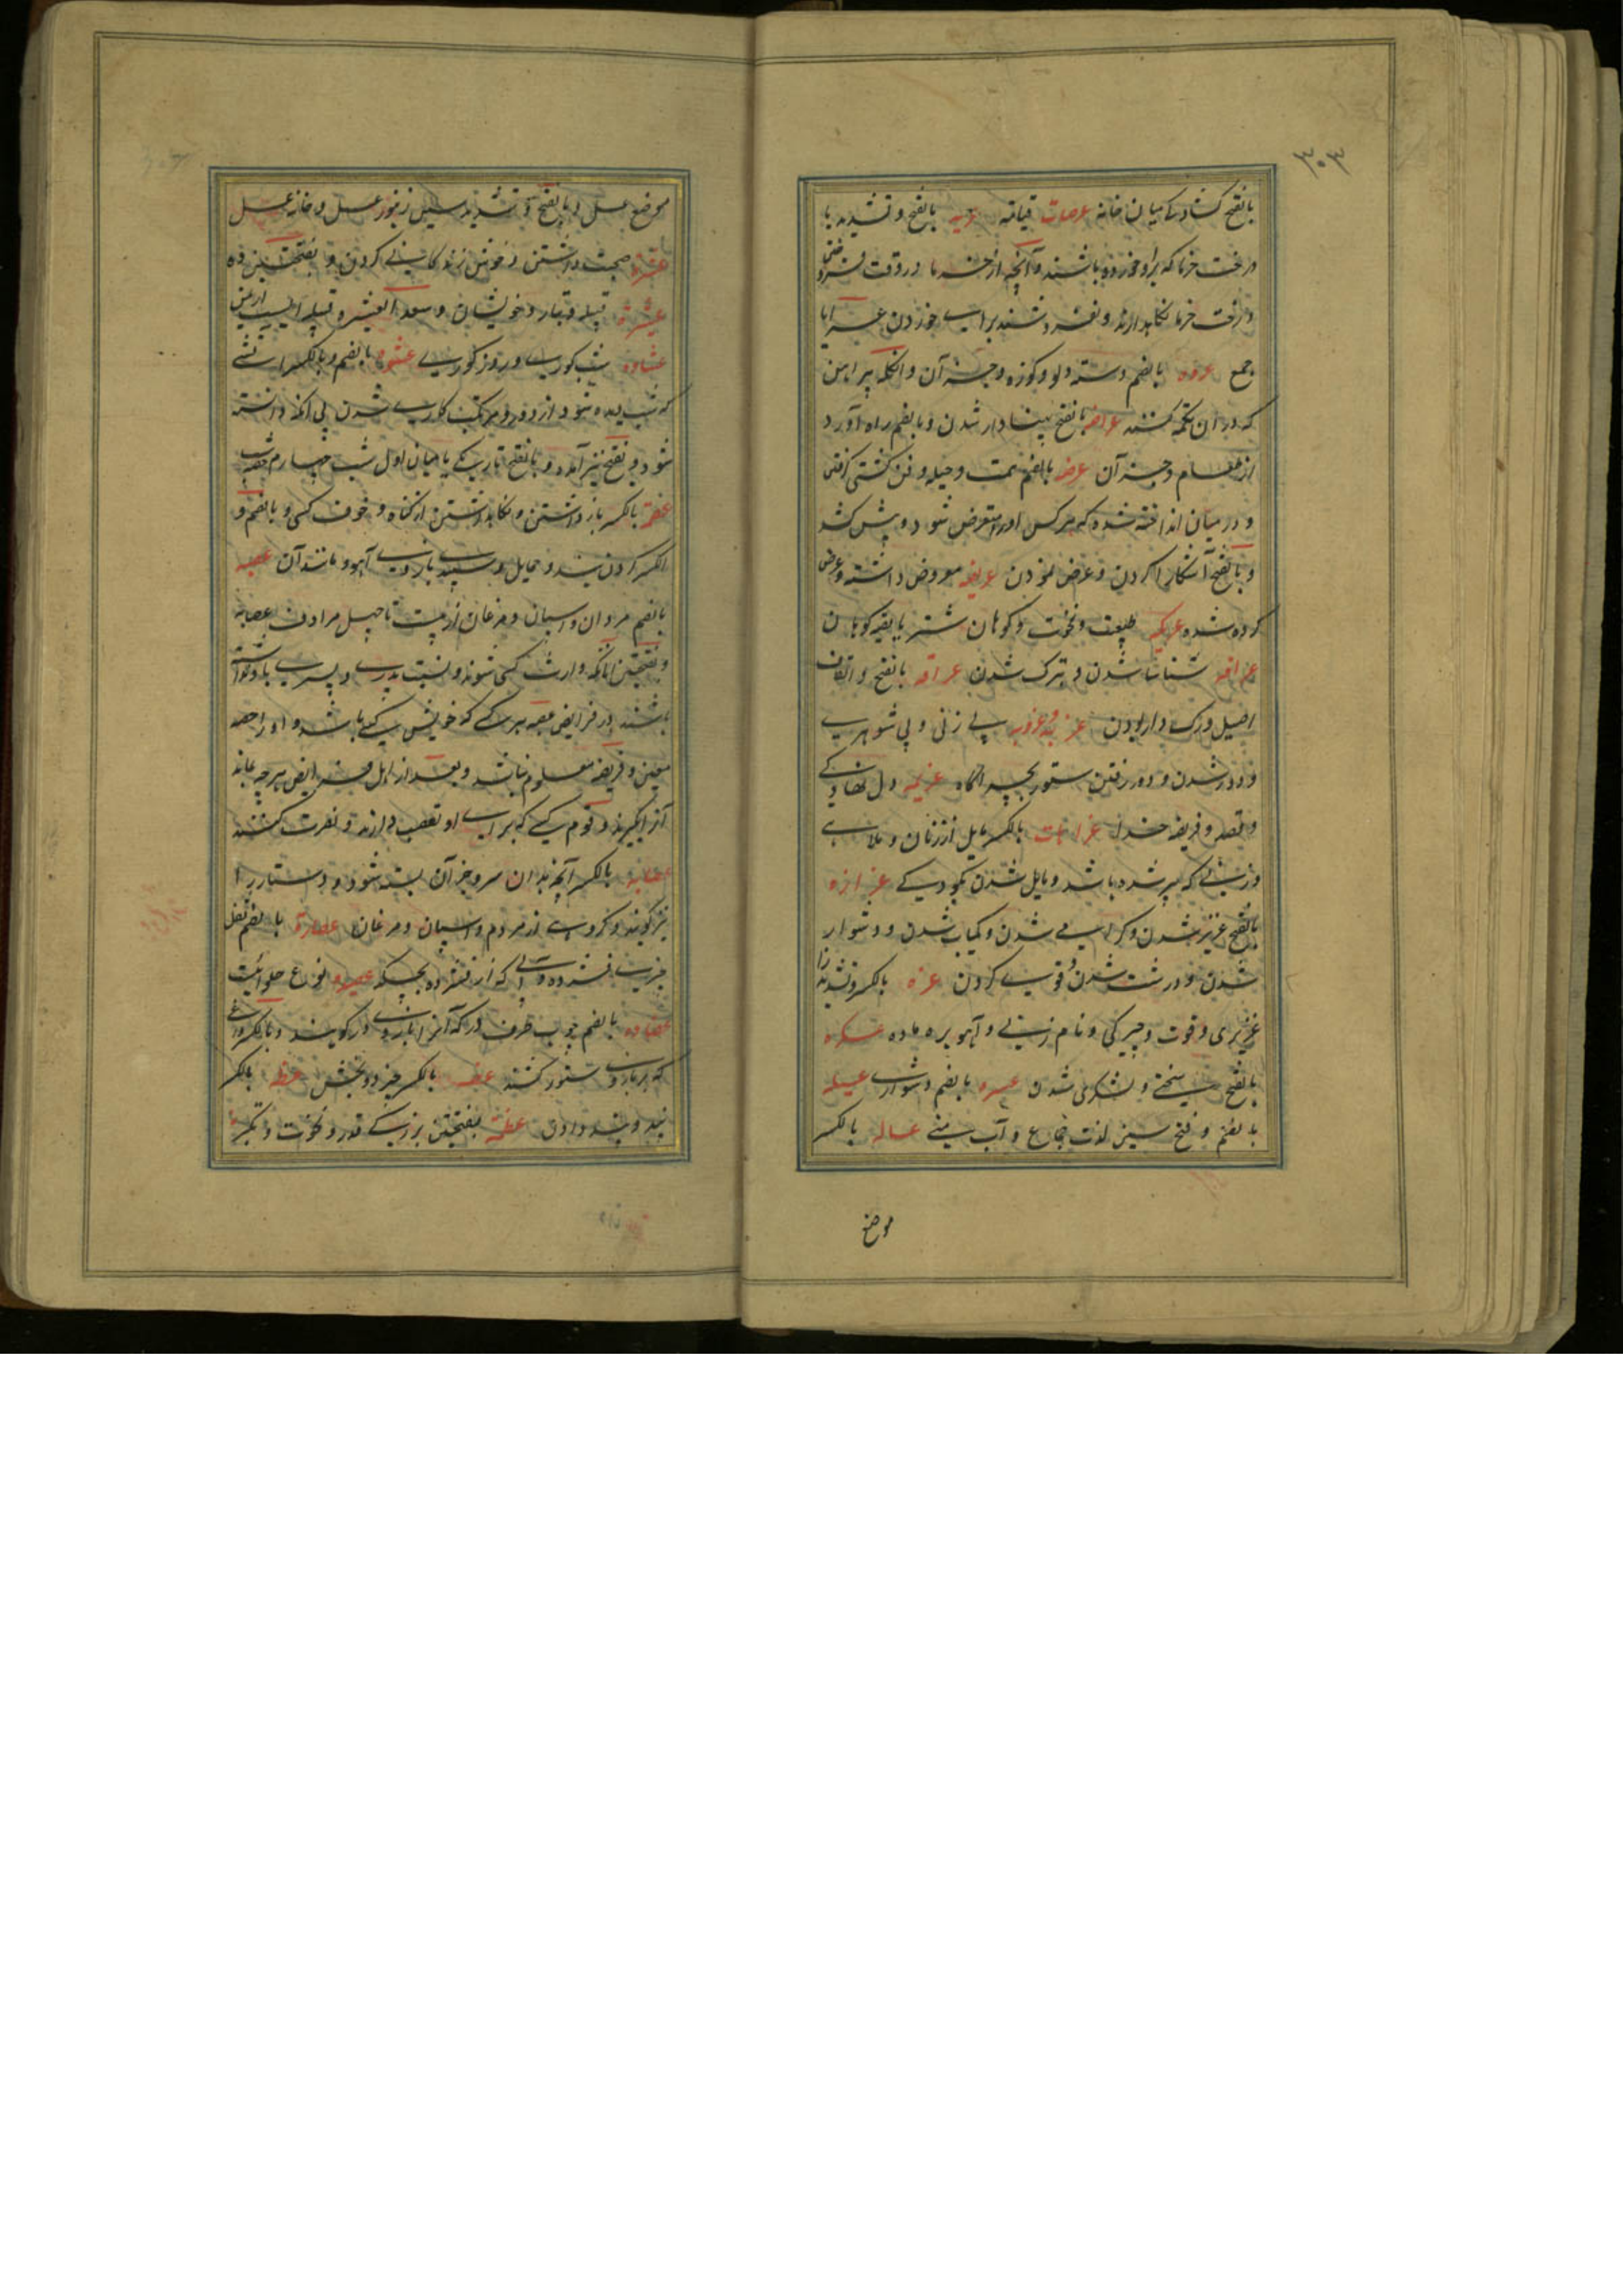 ۳۰۳
بالفتح کشادگی میان خانه عرصات قیامة عریه بالفتح و تشدید یا
درخت خرما که براو خورده باشند و آنچه از خرما در وقت فروختن
درخت خرما نکاهدارند و نفروشند برای خوردن عرایا
جمع عروه بالضم دسته دلو و کوزه و جز آن و انکله پیراهن
که در آن تکمه کنند عراضه بالفتح پهنادار شدن و بالضم راه آورد
از طعام و جز آن عرضه بالضم همت و حیله و فن کشتی گرفتن
و در میان انداخته شده که هر کس او را متعرض شود و پیش کشد
و بالفتح آشکارا کردن و عرض نمودن عریضه معروض داشته و عرض
کرده شده عریکه طبیعت و نخوت و کوهان شتر یا بقیه کوهان
عرافه شناسا شدن و بترک شدن عراقه بالفتح و القاف
اصیل و رک دار بودن عزبه و عزوبه بی زنی و بی شوهری
و دور شدن و دور رفتن ستور بچراگاه عزیمه دل نهادگی
و قصد و فریضه خدا عزامات بالکسر مایل از زنان و ملاهی
و زنی که پیر شده باشد و مایل شدن بکودکی عزازه
بالفتح عزیز شدن و گرامی شدن و کمیاب شدن و دشوار
شدن و درشت شدن و قوی کردن عزه بالکسر و تشدید زا
عزیزی و قوت و چیرگی و نام زنی و آهو بره ماده عسکره
بالفتح سختی و لشکری شدن عسره بالضم دشواری عسیله
بالضم و فتح سین لذت جماع و آب منی عساله بالکسر
موضع
موضع عسل و بالفتح و تشدید سین زنبور عسل و خانه عسل
عشرة صحبت داشتن و خوش زندگانی کردن و بفتحتین ده
عشیرة قبیله و تبار و خویشان و سعد العشیره قبیله ایست از یمن
عشاوه شب کوری و روز کوری عشوه بالضم و بالکسر آتشی
که شب دیده شود از دور و مرتکب کاری شدن بی آنکه دانسته
شود و بفتح نیز آمده و بالفتح تاریکی یا میان اول شب و چهارم حصه شب
عصمة بالکسر باز داشتن و نکاهداشتن از کناه و خوف کسی و بالضم و
الکسر گردن بند و حمایل و سپیدی بازوی آهو و مانند آن عصبه
بالضم مردان و اسپان و مرغان از بیست تا چهل مرادف عصابه
و بفتحتین آنانکه وارث کسی شوند و نسبت پدری و پسری با او نداشته
باشند و در فرایض عصبه هر کسی که خویش کسی باشد و او را حصه
معین و فریضه معلوم نباشد و بعد از اهل فرایض هر چه بماند
آنرا بگیرد و قوم کسی که برای او تعصب دارند و نصرت کنند
عصابه بالکسر آنچه بدان سر و جز آن بسته شود و دستار را
نیز گویند و گروهی از مردم و اسپان و مرغان عصارة بالضم ثفل
چیزی فشرده و آبی که از فشرده بچکد عصیده نوع حلوائیست
عضاده بالضم چوب طرف در که آنرا بازوی در گویند و بالکسر داغی
که بر بازوی ستور کنند عضه بالکسر جزو و بخش عظه بالکسر
پند و پند دادن عظمة بفتحتین بزرگی قدر و نخوت و تکبر